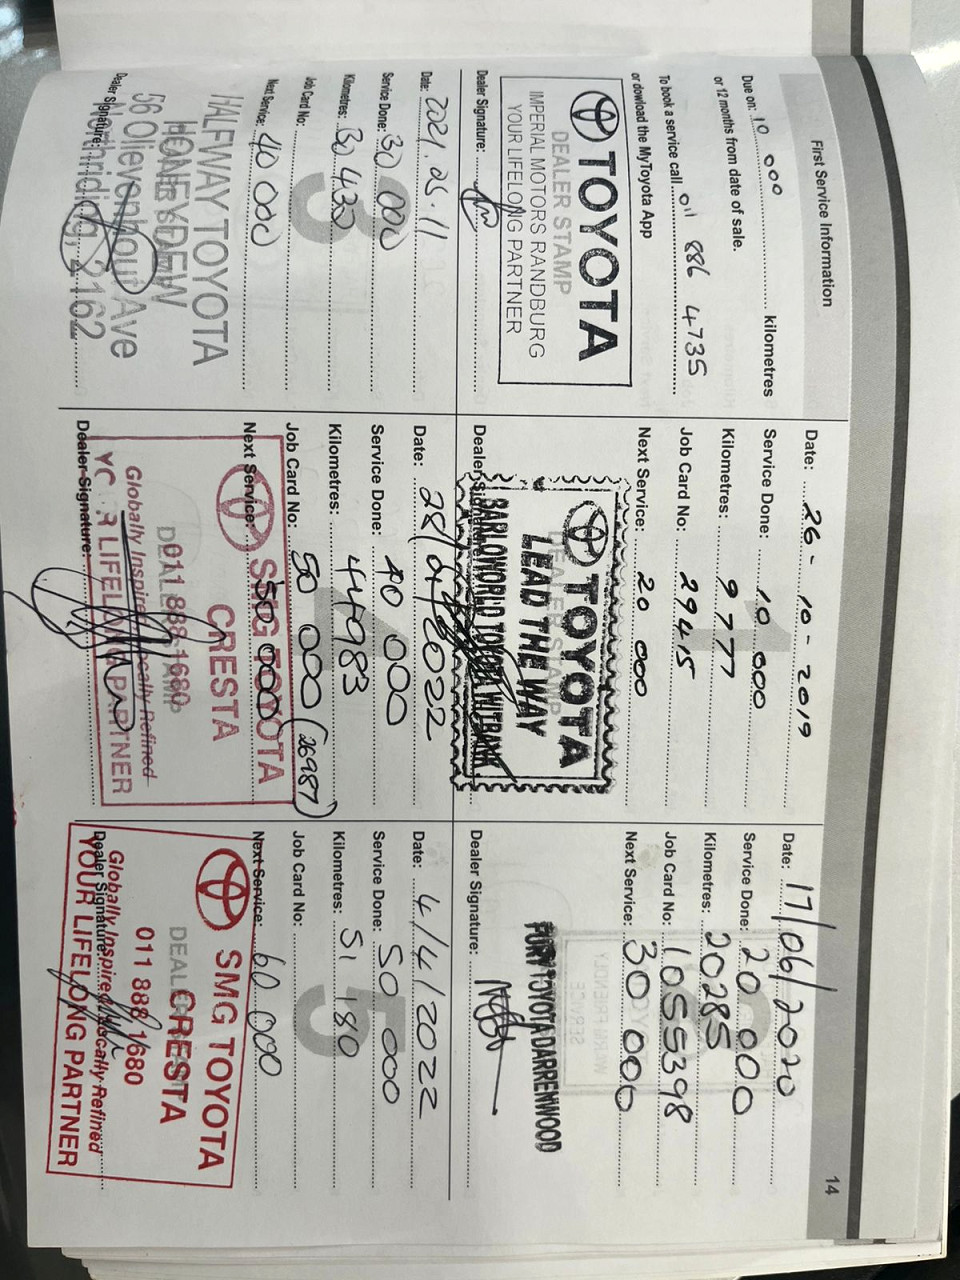 First Service Information
14
Due on: 10 000 kilometres
or 12 months from date of sale.
To book a service call 011 886 4735
or dowload the MyToyota App
TOYOTA
DEALER STAMP
IMPERIAL MOTORS RANDBURG
YOUR LIFELONG PARTNER
Dealer Signature:
1
Date: 26-10-2019
Service Done: 10 000
Kilometres: 9777
Job Card No: 29415
Next Service: 20 000
TOYOTA
DEALER STAMP
LEAD THE WAY
BARLOWORLD TOYOTA WITBANK
Dealer Signature:
Date: 17/06/2020
Service Done: 20 000
Kilometres: 20285
Job Card No: 1055398
Next Service: 30 000
FURY TOYOTA DARRENWOOD
Dealer Signature:
3
Date: 2021.05.11
Service Done: 30 000
Kilometres: 30 430
Job Card No:
Next Service: 40 000
HALFWAY TOYOTA
HONEYDEW
56 Olievenhout Ave
Northriding, 2162
Dealer Signature:
Date: 28/
Service Done: 40 000
Kilometres: 44983
Job Card No: 50 000 (26987)
Next Service: 50 000
SMG TOYOTA
CRESTA
DEALER STAMP
011 888 1680
Globally Inspired Locally Refined
YOUR LIFELONG PARTNER
Dealer Signature:
5
Date: 4/4/2022
Service Done: 50 000
Kilometres: 51 180
Job Card No:
Next Service: 60 000
SMG TOYOTA
CRESTA
DEALER STAMP
011 888 1680
Globally Inspired Locally Refined
YOUR LIFELONG PARTNER
Dealer Signature: